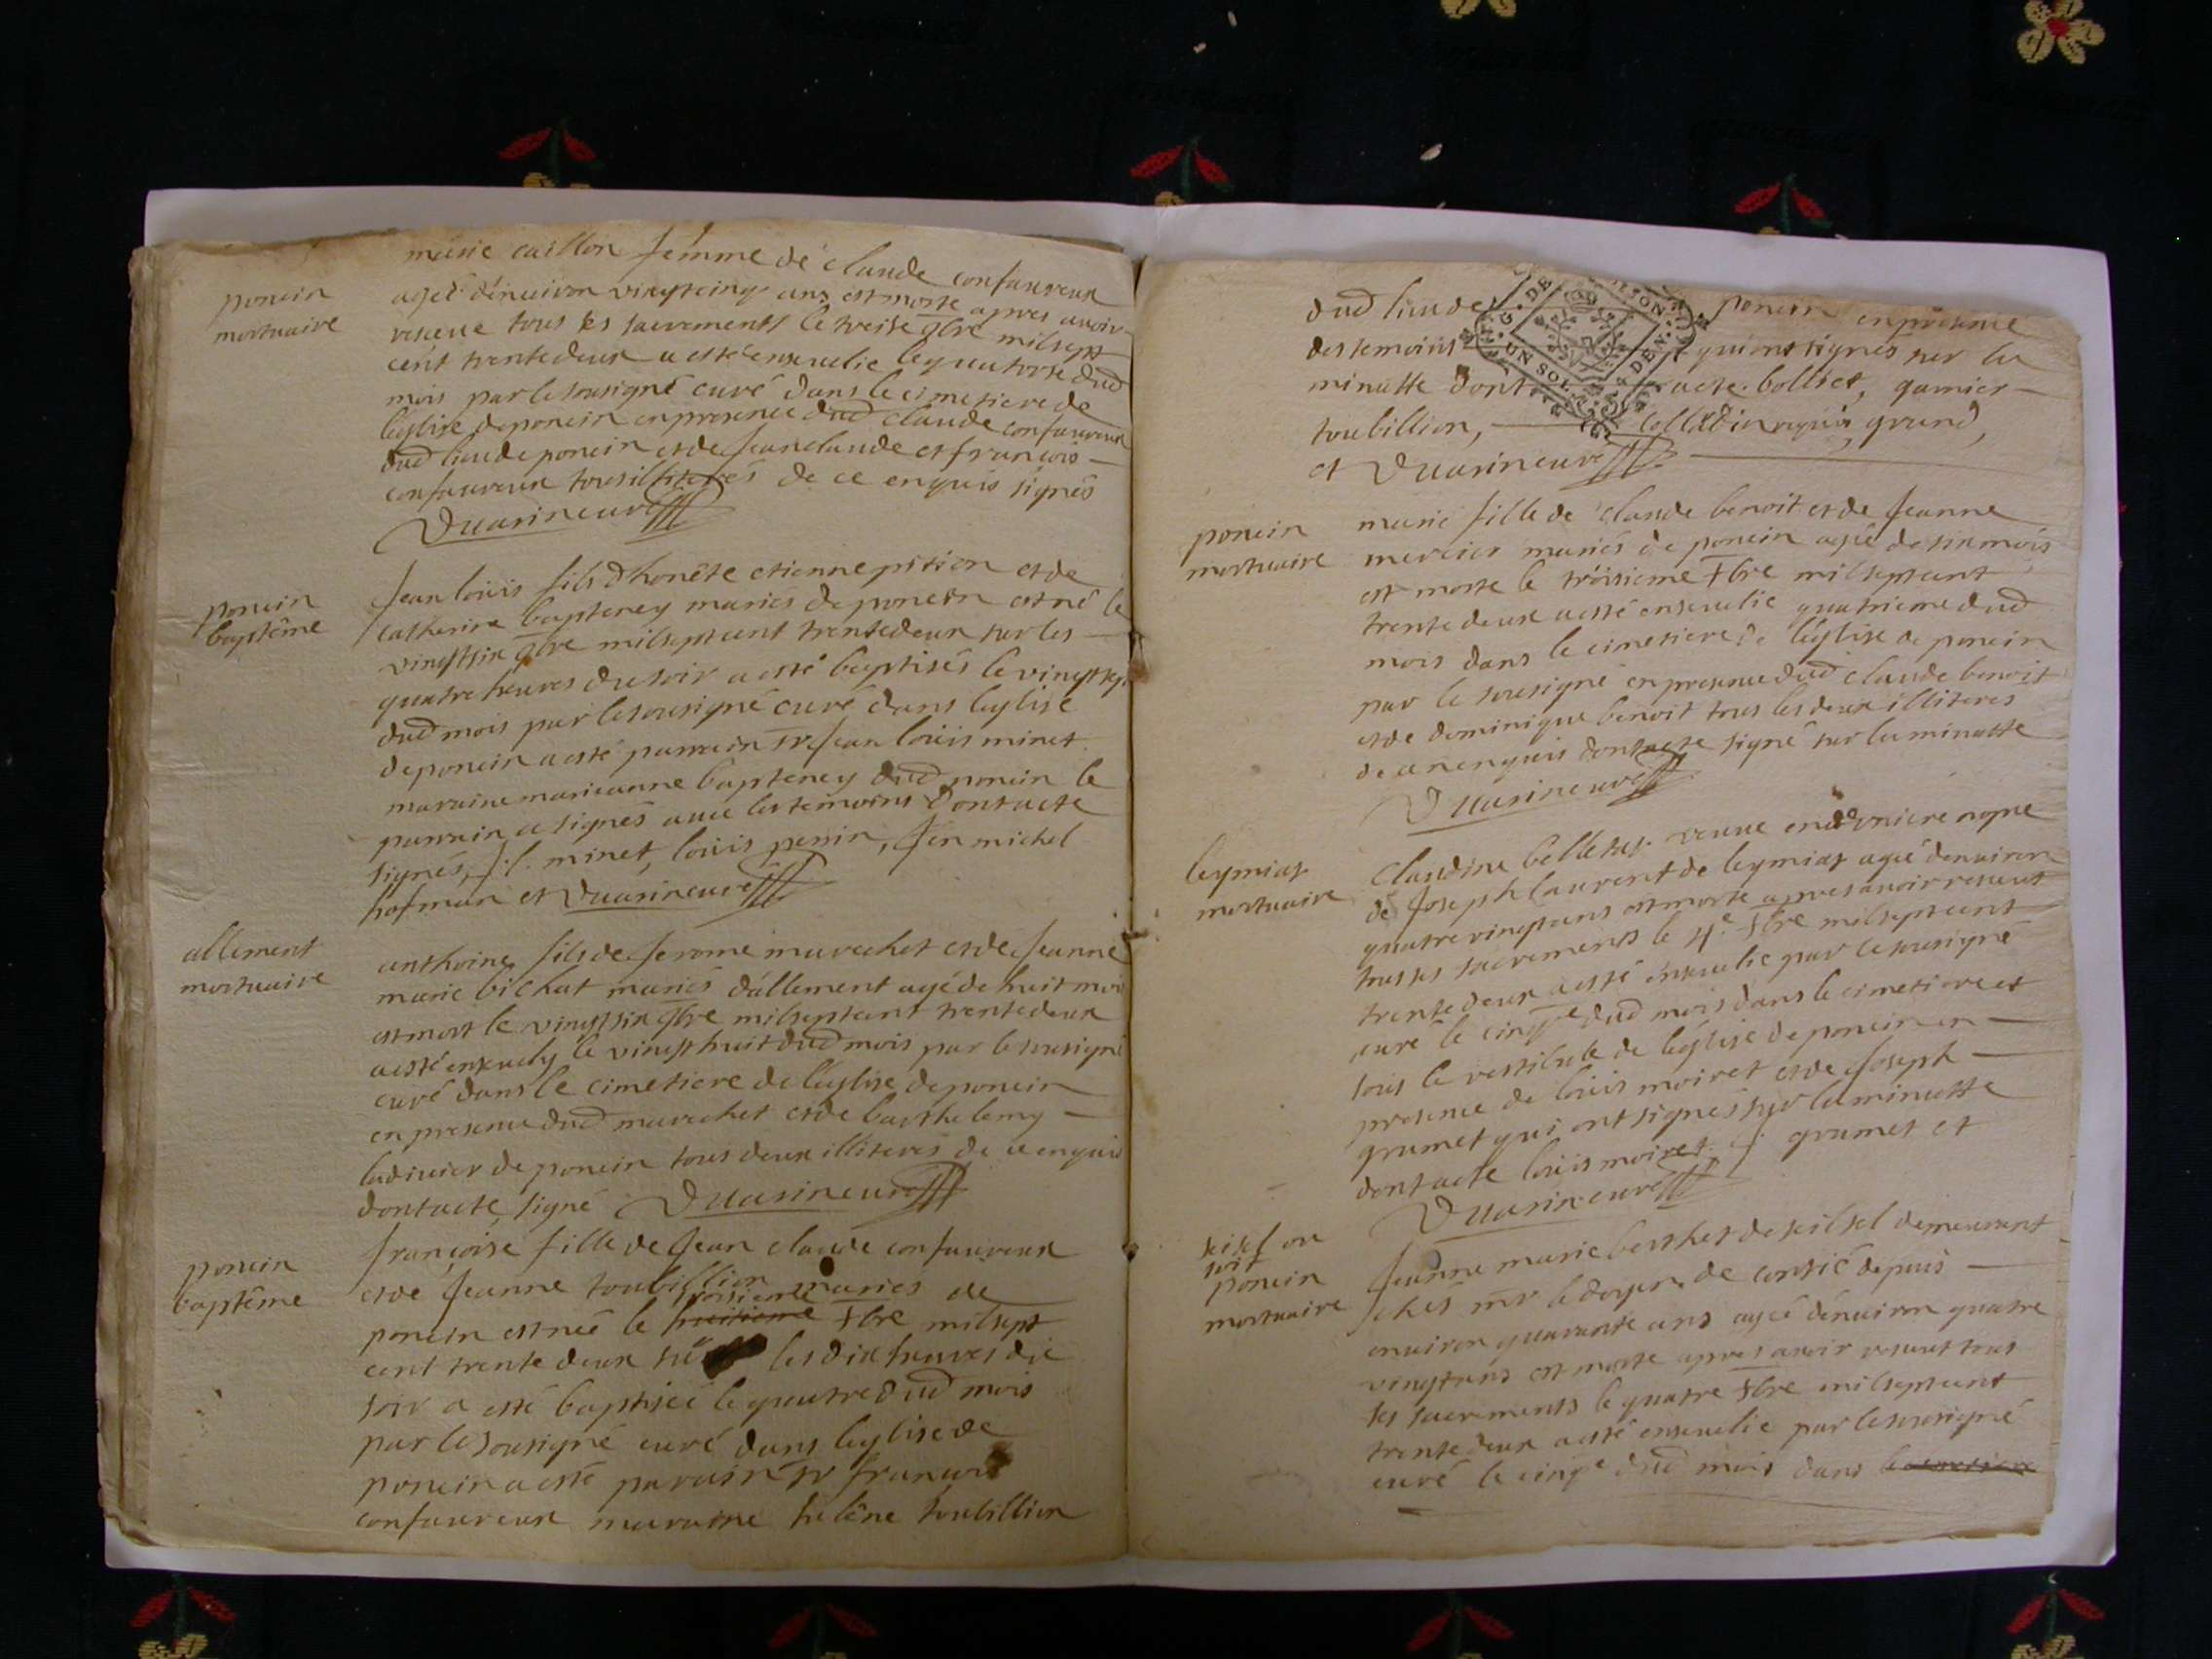 marie caillon femme de claude confavreux
poncin
mortuaire
ageé denuiron vingtcinq ans est morte apres avoir
reseue tous ses sacrements le treise 9bre milsept
cent trentedeux a esté ensevelie le quatorse dud
mois par le sousigné curé dans le cimetiere de
leglise de poncin en presence dud claude confavreux
dud lieu de poncin et de jean claude et francois
confavreux tous illiterés de ce enquis signés
Duarin curé
poncin
baptême
jean louis fils d'honête etienne pition et de
catherine bapterey mariés de poncin est né le
vingtsix 9bre milseptcent trentedeux sur les
quatre heures du soir a esté baptisés le vingtsept
dud mois par le sousigné curé dans leglise
de poncin a esté parrain sr jean louis minet
maraine marieanne bapterey dud poncin le
parrain a signés avec les temoins dont acte
signés, j. l. minet, louis perrin, jen michel
hofman et Duarin curé
allement
mortuaire
anthoine fils de jerome marechet et de jeanne
marie bichat mariés d'allement agé de huit moi
est mort le vingtsix 9bre milseptcent trentedeux
a esté ensevely le vingthuit dud mois par le sousigné
curé dans le cimetiere de l'eglise de poncin
en presence dud marechet et de barthelemy
ladivier de poncin tous deux illiteres de ce enquis
dont acte, signé Duarin curé
poncin
baptême
françoise fille de jean claude confavreux
et de jeanne toubillion mariés de
troisieme
poncin est neé le huitieme Xbre milsept
cent trente deux les dix heures du
soir a esté baptiseé le quatre dud mois
par le sousigné curé dans leglise de
poncin a esté parain sr françois
confavreux maraine helêne toubillion
dud lieu de poncin en presence
des temoins qui ont signés sur la
minutte dont acte. bolliet, garnier
toubillion, grand,
et Duarin curé
G. DE
UN SOL
DEN.
poncin
mortuaire
marie fille de claude benoit et de jeanne
mercier mariés de poncin ageé de six mois
est morte le troisieme Xbre milseptcent
trente deux a esté ensevelie quatrieme dud
mois dans le cimetiere de l'eglise de poncin
par le sousigné en presence dud claude benoit
et de dominique benoit tous les deux illiteres
de ce enquis dont acte signé sur la minutte
Duarin curé
leymiat
mortuaire
claudine veuve en derniere nopce
de joseph laurent de leymiat ageé denuiron
quatrevingt ans est morte apres avoir reseut
tous ses sacrements le 4e Xbre milseptcent
trentedeux a esté ensevelie par le sousigné
curé le cinqe dud mois dans le cimetiere et
sous le vestibule de leglise de poncin en
presence de louis moiret et de joseph
grumet qui ont signés sur la minutte
dont acte louis moiret. j. grumet et
Duarin curé
ou
soit
poncin
mortuaire
jeanne marie berthet de demeurant
chés mr le doyen de depuis
environ quarante ans ageé dénuiron quatre
vingt ans est morte apres avoir reseut tous
ses sacrements le quatre Xbre milseptcent
trentedeux a esté ensevelie par le sousigné
curé le cinqe dud mois dans le cimetiere